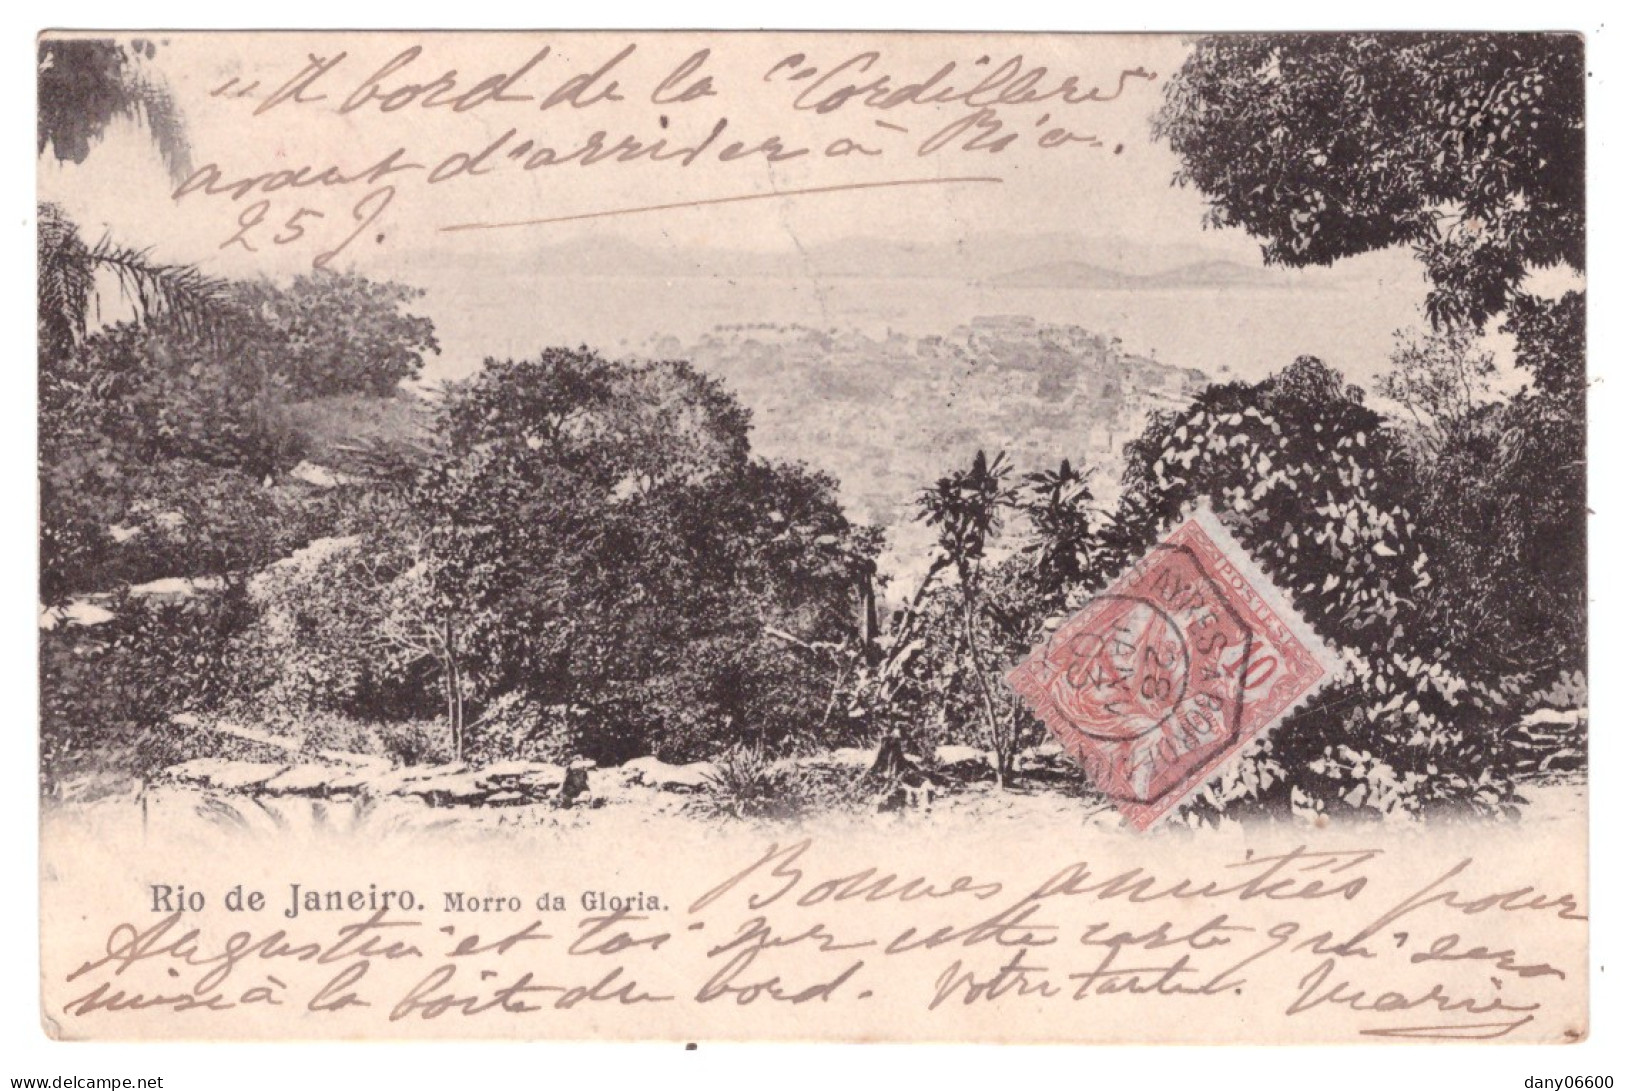 "A bord de la "Cordillère"
avant d'arriver à Rio.
25 J.
POSTES
10
B. AYRES A BORD
28
JANV
03
Bonnes amitiés pour
Rio de Janeiro. Morro da Gloria.
Augustin et toi par cette carte qui sera
mise à la boîte du bord. Votre tante. Marie
delcampe.net
dany06600